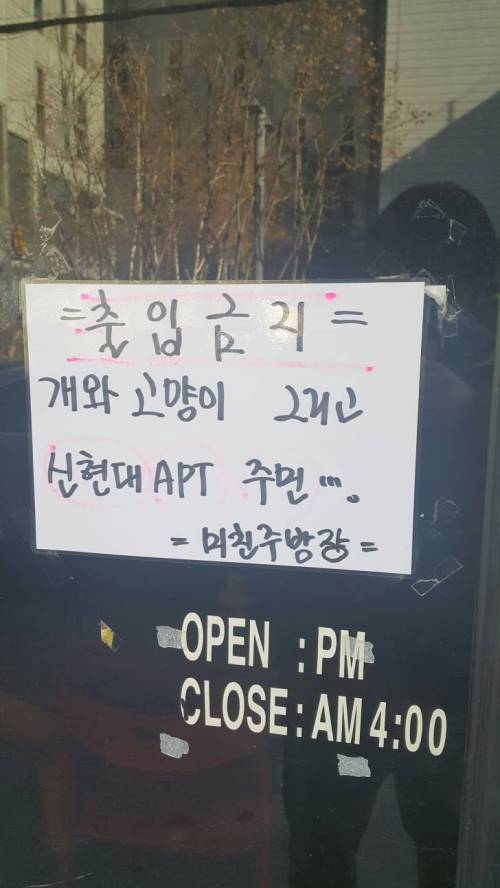 =출입금지=
개와 고양이 그리고
신현대APT 주민....
=미친주방장=
OPEN : PM
CLOSE : AM 4:00